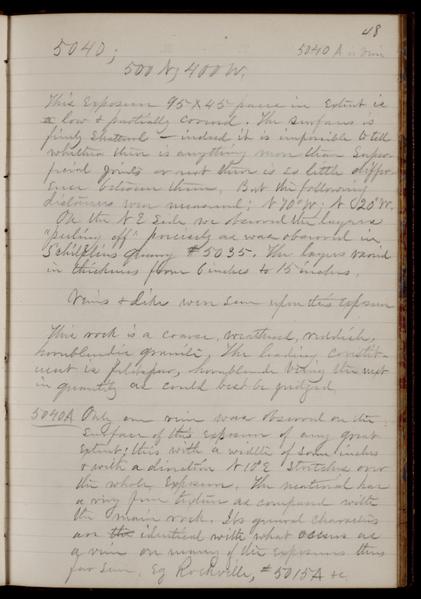 48
5040; 5040 A is Vein
500 N; 400 W.
This Exposure 95 X 45 paces in Extent is
low & partially covered. The surface is
finely Shattered – indeed it is impossible to tell
whether there is anything more than Super-
ficial joints or not there is so little differ-
ence between them. But the following
distances were measured; N 70° W; N 20° W.
On the N E Side we observed the layers
"peeling off" precisely as was observed in
Schilpflins Quarry # 5035. The layers varied
in thickness from 6 inches to 15 inches.
Veins & dike were seen upon this Exposure
This rock is a coarse, weathered, reddish,
hornblendic granite, The leading constit-
uent is feldspar, hornblende being the next
in quantity as could best be judged.
5040A Only one vein was observed on the
Surface of this Exposure of any great
Extent; this with a width of some inches
& with a direction N 10° E Stretches over
the whole Exposure. The material has
a very fine texture as compared with
the main rock. Its general characters
are identical with what occurs as
a vein on many of the exposures thus
far seen. Eg Rockville, # 5015A &c